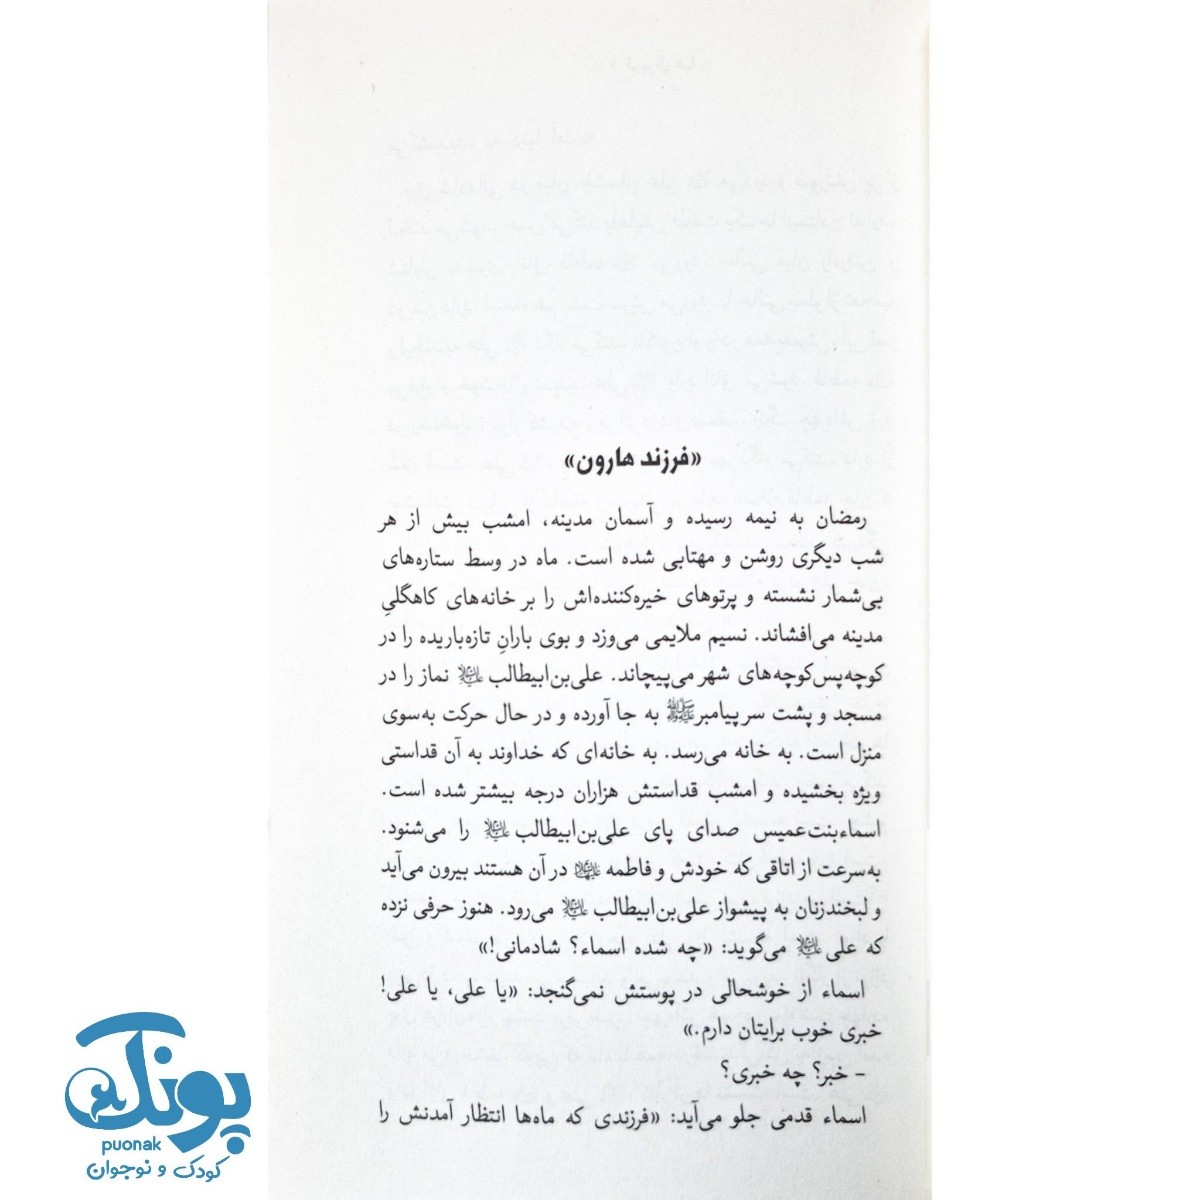 «فرزند هارون»
رمضان به نیمه رسیده و آسمان مدینه، امشب بیش از هر
شب دیگری روشن و مهتابی شده است. ماه در وسط ستاره‌های
بی‌شمار نشسته و پرتوهای خیره‌کننده‌اش را بر خانه‌های کاهگلیِ
مدینه می‌افشاند. نسیم ملایمی می‌وزد و بوی بارانِ تازه‌باریده را در
کوچه‌پس‌کوچه‌های شهر می‌پیچاند. علی‌بن‌ابیطالب علیه‌السلام نماز را در
مسجد و پشت سر پیامبر ﷺ به جا آورده و در حال حرکت به‌سوی
منزل است. به خانه می‌رسد. به خانه‌ای که خداوند به آن قداستی
ویژه بخشیده و امشب قداستش هزاران درجه بیشتر شده است.
اسماءبنت‌عمیس صدای پای علی‌بن‌ابیطالب علیه‌السلام را می‌شنود.
به‌سرعت از اتاقی که خودش و فاطمه علیهاالسلام در آن هستند بیرون می‌آید
و لبخندزنان به پیشواز علی‌بن‌ابیطالب علیه‌السلام می‌رود. هنوز حرفی نزده
که علی علیه‌السلام می‌گوید: «چه شده اسماء؟ شادمانی!»
اسماء از خوشحالی در پوستش نمی‌گنجد: «یا علی، یا علی!
خبری خوب برایتان دارم.»
- خبر؟ چه خبری؟
اسماء قدمی جلو می‌آید: «فرزندی که ماه‌ها انتظار آمدنش را
پونک
puonak
کودک و نوجوان